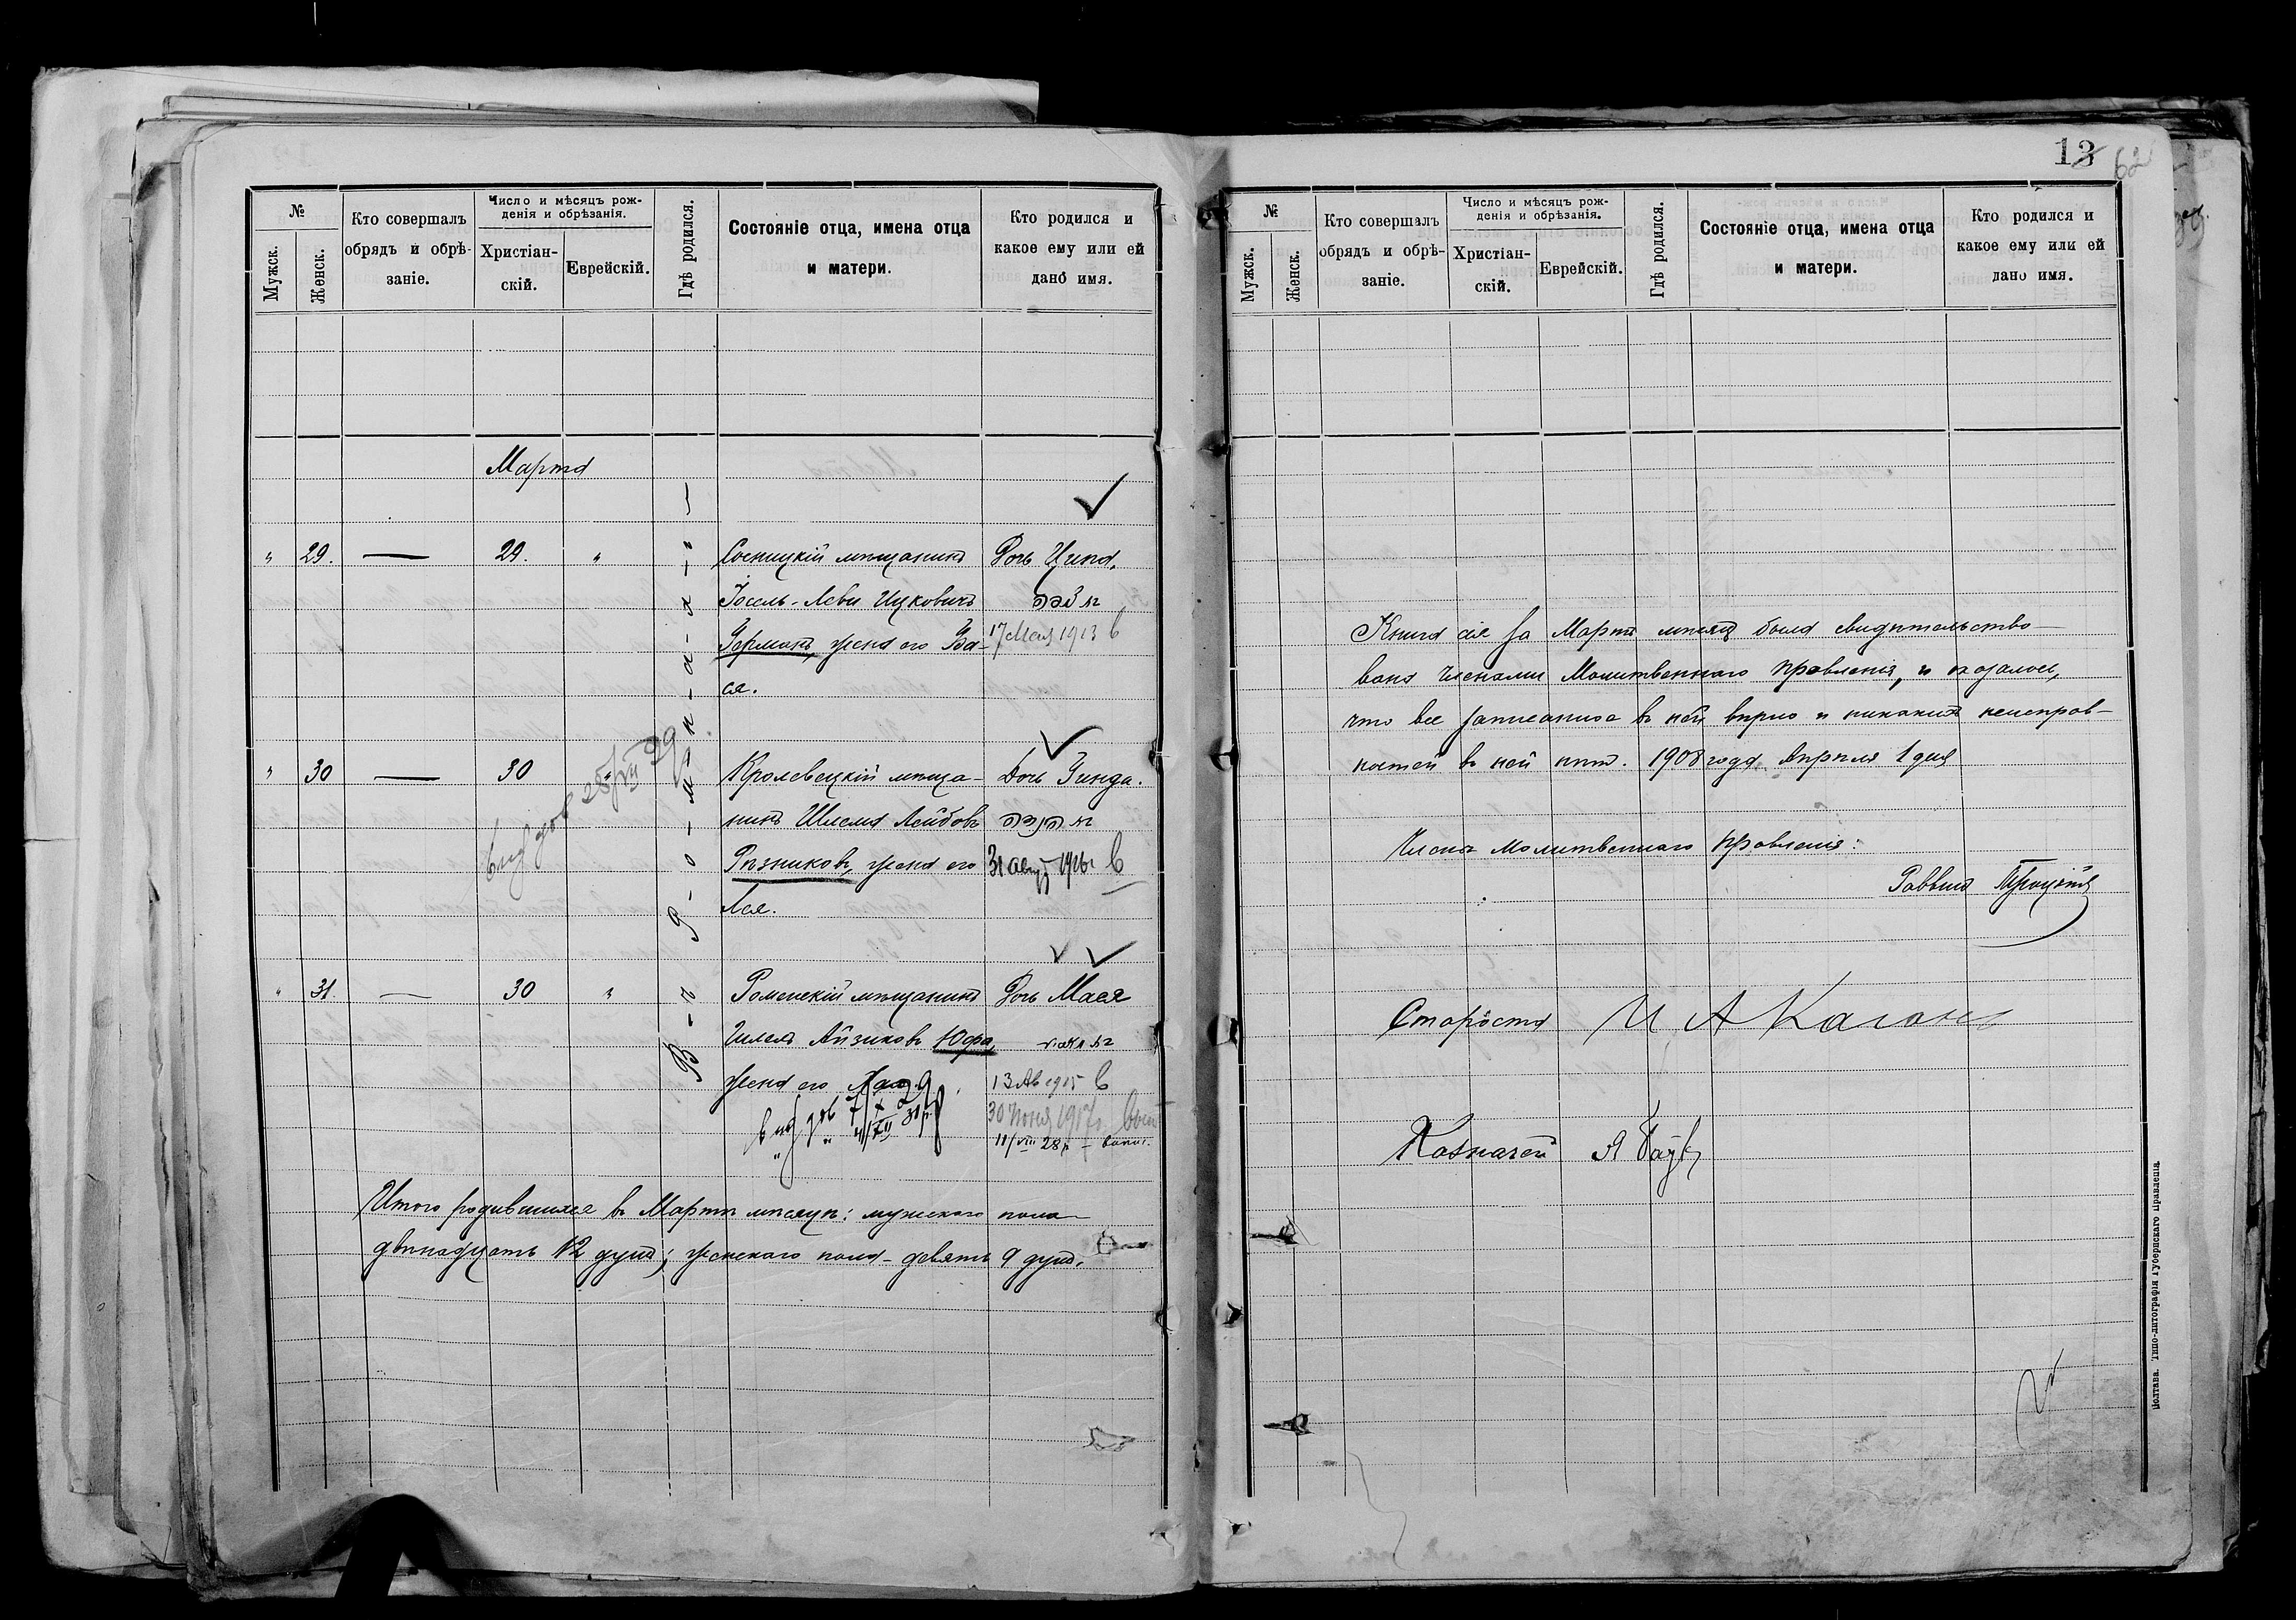 №
Мужск.
Женск.
Кто совершалъ
обрядъ и обрѣ-
заніе.
Число и мѣсяцъ рож-
денія и обрѣзанія.
Христіан-
скій.
Еврейскій.
Гдѣ родился.
Состояніе отца, имена отца
и матери.
Кто родился и
какое ему или ей
дано имя.
Марта
В-ъ Р-о-м-н-а-х-ъ
" 29. — 29. " Сосницкій мѣщанинъ Дочь Ципа.
Іосель-Леви Ицковичъ
Германъ, жена его Ба- 17 Мая 1913 в
ся.
" 30 — 30 " Кролевецкій мѣща- Дочь Гинда.
нинъ Шлема Лейбовъ
Рѣзниковъ, жена его 31 авг 1916 в
Лея.
" 31 — 30 " Роменскій мѣщанинъ Дочь Мася
Гилель Айзиковъ Юфа,
жена его 13 Ав 1915 в
30 Июня 1917
11/VIII 28 г.
Итого родившихся въ Мартѣ мѣсяцѣ: мужского пола
двѣнадцать 12 душъ; женского пола - девять 9 душъ.
13 62
№
Мужск.
Женск.
Кто совершалъ
обрядъ и обрѣ-
заніе.
Число и мѣсяцъ рож-
денія и обрѣзанія.
Христіан-
скій.
Еврейскій.
Гдѣ родился.
Состояніе отца, имена отца
и матери.
Кто родился и
какое ему или ей
дано имя.
Книга сія за Мартъ мѣсяцъ была свидѣтельство-
вана Членами Молитвеннаго Правленія, и оказалось,
что все записанное въ ней вѣрно и никакихъ неисправ-
ностей въ ней нѣтъ. 1908 года Апрѣля 1 дня
Члены Молитвеннаго Правленія:
Раввинъ Троцкій
Староста И А Каганъ
Казначей Я
Полтава. Типо-литографія Губернскаго Правленія.